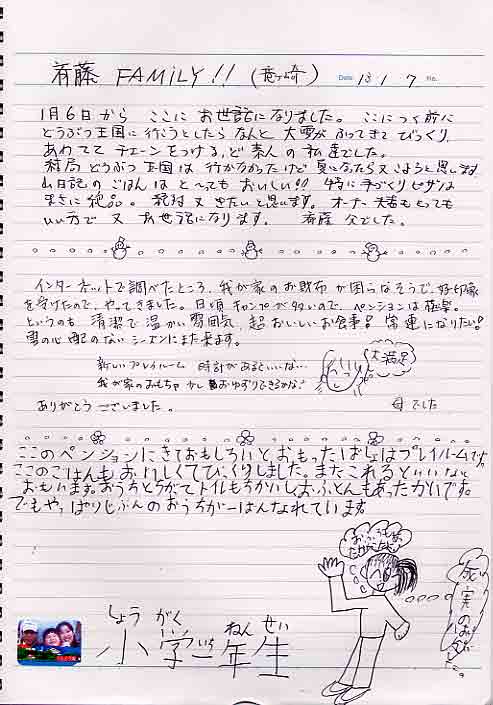 斉藤 FAMiLY!! (竜ヶ崎) Date 13 1 7 No.
1月6日から ここに お世話になりました。ここにつく前に
どうぶつ王国に行こうとしたら なんと 大雪が ふってきて びっくり、
あわてて チェーンをつける、ど素人の私達でした。
結局 どうぶつ王国は 行かなかったけど 夏になったら又こようと思います
山日記のごはんは と〜っても おいしい!! 特に手づくりピザは
まさに 絶品。 絶対又 きたいと思います。オーナー夫婦もとっても
いい方で 又 お世話になります。 斉藤 父でした。
インターネットで調べたところ、我が家のお財布が困らなそうで、好印象
を受けたので、やってきました。日頃キャンプが多いので、ペンションは極楽。
というのも 清潔で温かい雰囲気、超おいしいお食事! 常連になりたい!
雪の心配のないシーズンにまた来ます。
新しいプレイルーム 時計があるといいな…
我が家のおもちゃ少しおゆずりできるかな?
大満足
ありがとうございました。
母でした
このペンションにきておもしろいとおもったばしょはプレイルームです
ここのごはんもおいしくてびっくりしました。またこれるといいなと
おもいます。おうちとちがってトイレもちかいしおふとんもあったかいです。
でもやっぱりじぶんのおうちが一ばんなれています
しょうがく いち ねんせい
小学一年生